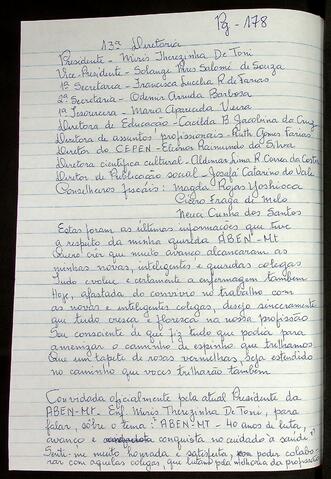 Pg - 178
13ª Diretoria
Presidente - Miris Therezinha De Toni
Vice-Presidente - Solange Pires Salomé de Souza
1ª Secretaria - Francisca Lucelia R. de Farias
2ª Secretaria - Odemir Arruda Barbosa
1ª Tesoureira - Maria Aparecida Vieira
Diretora de Educação - Cacilda B. Jacolina da Cruz
Diretora de assuntos profissionais - Ruth Gomes Farias
Diretor do CEPEN - Elcione Raimundo da Silva
Diretora cientifica cultural - Aldimar Lima R. Correa da Costa
Diretor de Publicação social - Josafa Catarino do Vale
Conselheiros fiscais: Magda Rojas Yoshioca
Cicero Fraga de Melo
Neuza Cunha dos Santos
Estas foram as últimas informações que tive
a respeito da minha querida ABEN-MT
Quero crer que muito avanço alcançaram as
minhas novas, inteligentes e queridas colegas
Tudo evolue e certamente a enfermagem também
Hoje, afastada do convivio no trabalho com
as novas e inteligentes colegas, desejo sinceramente
que tudo cresca e floresca na nossa profissão
Sou consciente de que fiz tudo que podia para
amenizar o caminho de espinho que trilhamos
Que um tapete de rosas vermelhas, seja estendido
no caminho que voces trilharão também
Convidada oficialmente pela atual Presidente da
ABEN-MT. Enf. Miris Therezinha De Toni, para
falar, sôbre o tema: ABEN-MT - 40 anos de luta,
avanço e conquista no cuidado à saúde!
Senti-me muito honrada e satisfeita, em poder colabo-
rar com aquelas colegas, que lutam pela melhoria da profissão